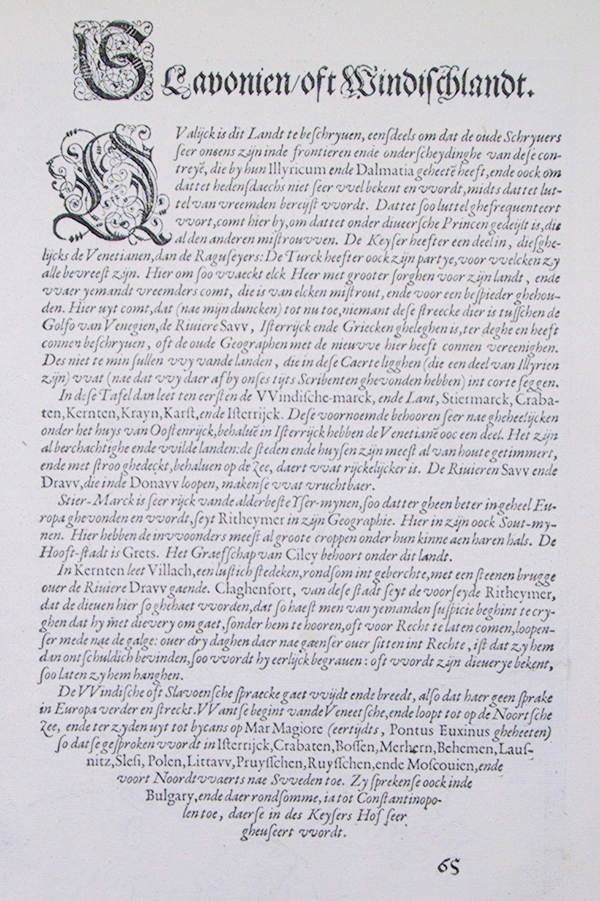 SLavonien/oft Windischlandt.
QValijck is dit Landt te beschryuen, eensdeels om dat de oude Schryuers
seer oneens zijn inde frontieren ende onderscheydinghe van dese con-
treyē, die by hun Illyricum ende Dalmatia geheetē heeft, ende oock om
dattet hedensdaechs niet seer vvel bekent en vvordt, midts datter lut-
tel van vreemden bereyst vvordt. Dattet soo luttel ghefrequenteert
vvort, comt hier by, om dattet onder diueersche Princen gedeylt is, die
al den anderen mistrouvven. De Keyser heefter een deel in, diesghe-
lijcks de Venetianen, dan de Raguseyers: De Turck heefter oock zijn partye, voor vvelcken zy
alle bevreest zijn. Hier om soo vvaeckt elck Heer met grooter sorghen voor zijn landt, ende
vvaer yemandt vreemders comt, die is van elcken mistrout, ende voor een bespieder ghehou-
den. Hier uyt comt, dat (nae mijn duncken) tot nu toe, niemant dese streecke dier is tusschen de
Golfo van Venegien, de Riuiere Savv, Isterrijck ende Griecken gheleghen is, ter deghe en heeft
connen beschryuen, oft de oude Geographen met de nieuvve hier heeft connen vereenighen.
Des niet te min sullen vvy vande landen, die in dese Caerte ligghen (die een deel van Illyrien
zijn) vvat (nae dat vvy daer af by onses tijts Scribenten ghevonden hebben) int corte seggen.
In dese Tafel dan leet ten eersten de VVindische-marck, ende Lant, Stiermarck, Craba-
ten, Kernten, Krayn, Karst, ende Isterrijck. Dese voornoemde behooren seer nae gheheelijcken
onder het huys van Oostenrijck, behaluē in Isterrijck hebben de Venetianē ooc een deel. Het zijn
al berchachtighe ende vvilde landen: de steden ende huysen zijn meest al van houte getimmert,
ende met stroo ghedeckt, behaluen op de Zee, daert vvat rijckelijcker is. De Riuieren Savv ende
Dravv, die inde Donavv loopen, makense vvat vruchtbaer.
Stier-Marck is seer rijck vande alderbeste Yser-mynen, soo datter gheen beter in geheel Eu-
ropa ghevonden en vvordt, seyt Ritheymer in zijn Geographie. Hier in zijn oock Sout-my-
nen. Hier hebben de invvoonders meest al groote croppen onder hun kinne aen haren hals. De
Hooft-stadt is Grets. Het Graefschap van Ciley behoort onder dit landt.
In Kernten leet Villach, een lustich stedeken, rondsom int geberchte, met een steenen brugge
ouer de Riuiere Dravv gaende. Claghenfort, van dese stadt seyt de voorseyde Ritheymer,
dat de dieuen hier so ghehaet vvorden, dat so haest men van yemanden suspicie beghint te cry-
ghen dat hy met dievery om gaet, sonder hem te hooren, oft voor Recht te laten comen, loopen-
ser mede nae de galge: ouer dry daghen daer nae gaenser ouer sitten int Rechte, ist dat zy hem
dan ontschuldich bevinden, soo vvordt hy eerlijck begrauen: oft vvordt zijn dieuerye bekent,
soo laten zy hem hanghen.
De VVindische oft Slavoensche spraecke gaet vvijdt ende breedt, also dat haer geen sprake
in Europa verder en streckt. VVant se begint vande Veneetsche, ende loopt tot op de Noortsche
Zee, ende ter zyden uyt tot bycans op Mar Magiore (eertijdts, Pontus Euxinus gheheeten)
so datse gesproken vvordt in Isterrijck, Crabaten, Bossen, Merhern, Behemen, Laus-
nitz, Slesi, Polen, Littavv, Pruysschen, Ruysschen, ende Moscouien, ende
voort Noordtvvaerts nae Svveden toe. Zy sprekense oock inde
Bulgary, ende daer rondsomme, ia tot Constantinopo-
len toe, daerse in des Keysers Hof seer
gheuseert vvordt.
65